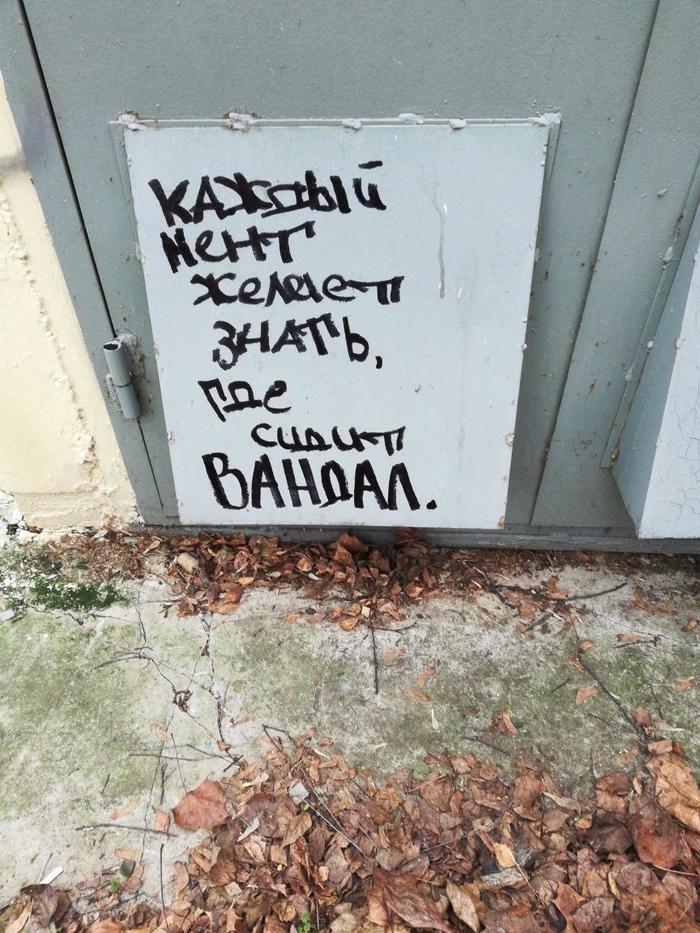 КАЖДЫЙ
МЕНТ
желает
ЗНАТЬ,
где
сидит
ВАНДАЛ.